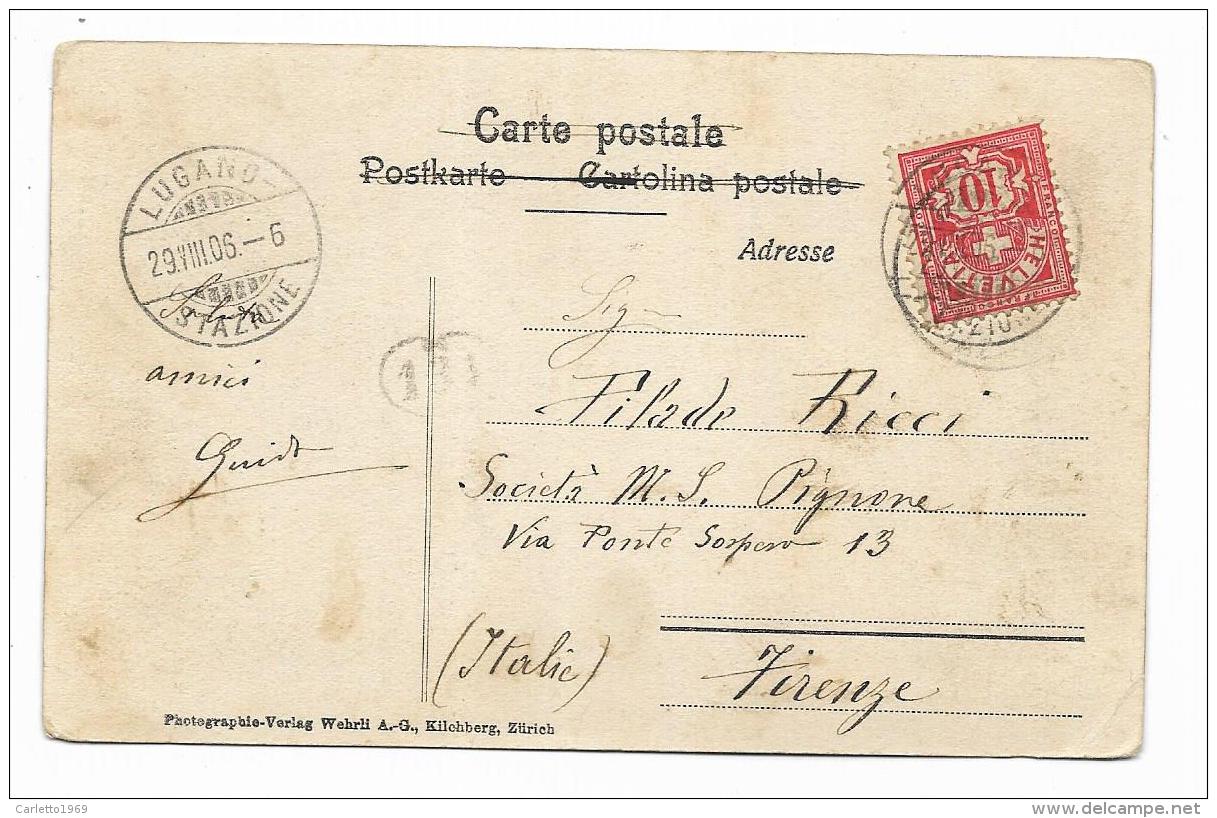 Carte postale
Postkarte Cartolina postale
Adresse
LUGANO
29.VIII.06.-6
STAZIONE
amici
Guido
10
HELVETIA
FRANCO
FRANCO
Sig
Pilade Ricci
Società M. S. Pignone
Via Ponte 13
(Italie)
Firenze
Photographie-Verlag Wehrli A.-G., Kilchberg, Zürich
Carletto1969
delcampe.net